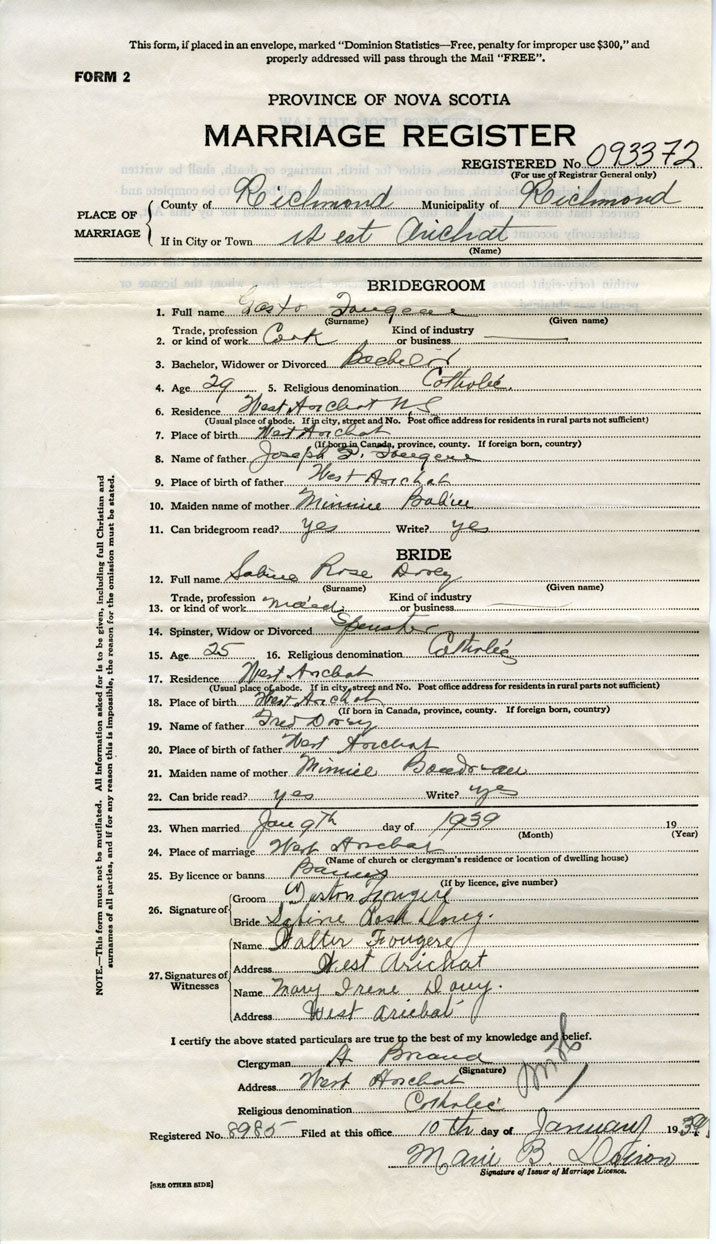 This form, if placed in an envelope, marked "Dominion Statistics—Free, penalty for improper use $300," and
properly addressed will pass through the Mail "FREE".
FORM 2
PROVINCE OF NOVA SCOTIA
MARRIAGE REGISTER
REGISTERED No. 093372
(For use of Registrar General only)
PLACE OF MARRIAGE
County of Richmond Municipality of Richmond
If in City or Town West Arichat
(Name)
BRIDEGROOM
1. Full name Fougere
(Surname) (Given name)
Trade, profession Kind of industry
2. or kind of work Cook or business
3. Bachelor, Widower or Divorced Bachelor
4. Age 29 5. Religious denomination Catholic
6. Residence West Arichat NS
(Usual place of abode. If in city, street and No. Post office address for residents in rural parts not sufficient)
7. Place of birth West Arichat
(If born in Canada, province, county. If foreign born, country)
8. Name of father Joseph Fougere
9. Place of birth of father West Arichat
10. Maiden name of mother Minnie Babin
11. Can bridegroom read? yes Write? yes
BRIDE
12. Full name Sabine Rose Dorey
(Surname) (Given name)
Trade, profession Kind of industry
13. or kind of work maid or business
14. Spinster, Widow or Divorced Spinster
15. Age 25 16. Religious denomination Catholic
17. Residence West Arichat
(Usual place of abode. If in city, street and No. Post office address for residents in rural parts not sufficient)
18. Place of birth West Arichat
(If born in Canada, province, county. If foreign born, country)
19. Name of father Fred Dorey
20. Place of birth of father West Arichat
21. Maiden name of mother Minnie
22. Can bride read? yes Write? yes
23. When married Jan 9th day of 1939 19
(Month) (Year)
24. Place of marriage West Arichat
(Name of church or clergyman's residence or location of dwelling house)
25. By licence or banns Banns
(If by licence, give number)
26. Signature of
Groom Fougere
Bride Sabine Rose Dorey.
27. Signatures of Witnesses
Name Walter Fougere
Address West Arichat
Name Mary Irene Dorey.
Address West Arichat
I certify the above stated particulars are true to the best of my knowledge and belief.
Clergyman A Briand
(Signature)
Address West Arichat
Religious denomination Catholic
Registered No. 8985 Filed at this office 10th day of January 1939
Marie B. Doiron
Signature of Issuer of Marriage Licence.
[SEE OTHER SIDE]
NOTE.—This form must not be mutilated. All information asked for is to be given, including full Christian and
surnames of all parties, and if for any reason this is impossible, the reason for the omission must be stated.